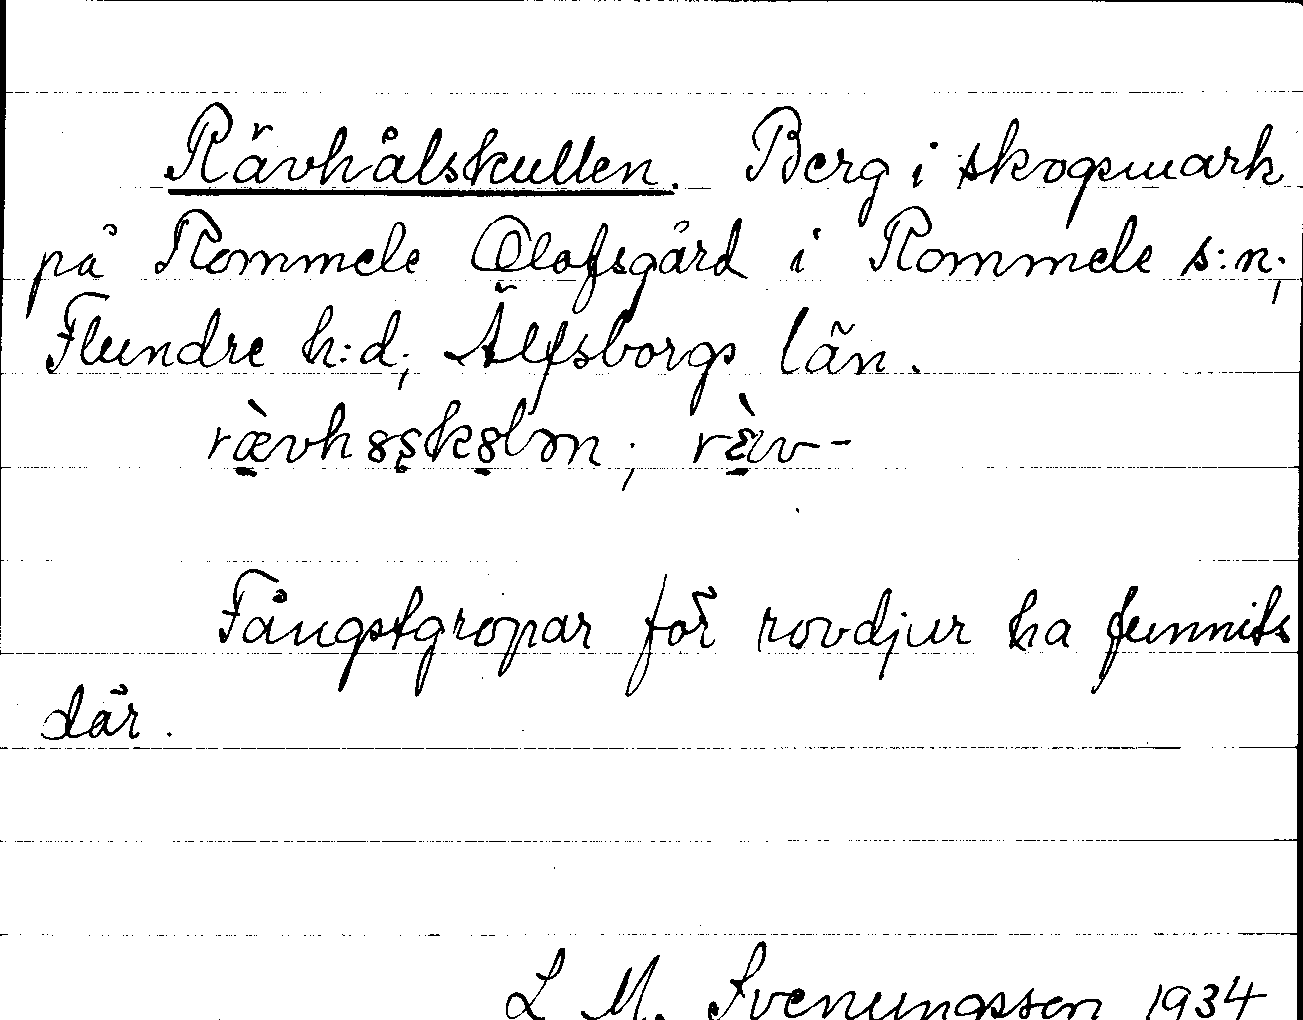 Rävhålskullen. Berg i skogsmark
på Rommele Olofsgård i Rommele s:n;
Flundre h:d; Älfsborgs län.
ræ̀vhȣskȣlən; rɛ̀v-
Fångstgropar för rovdjur ha funnits
där.
L M. Svenungsson 1934